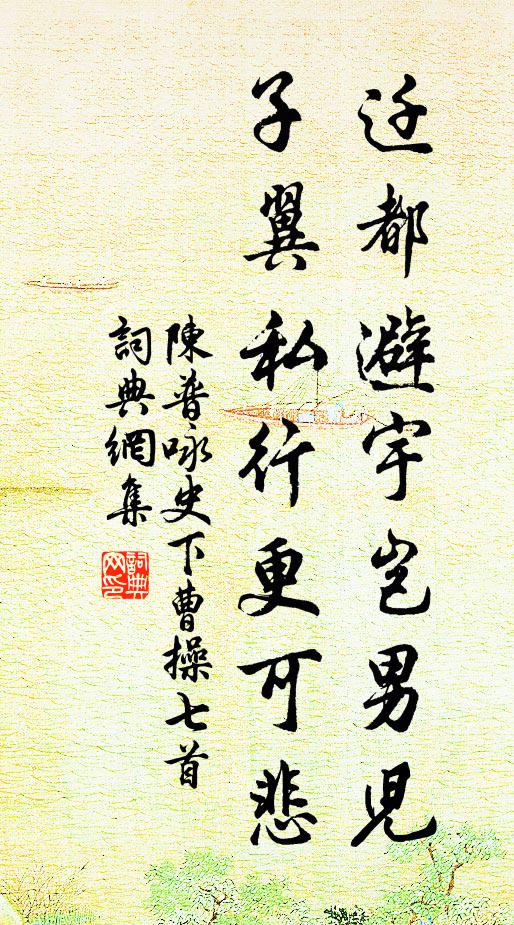 迁都避宇岂男児
子翼私行更可悲
陳普咏史下曹操七首
詞典網集
詞典网印